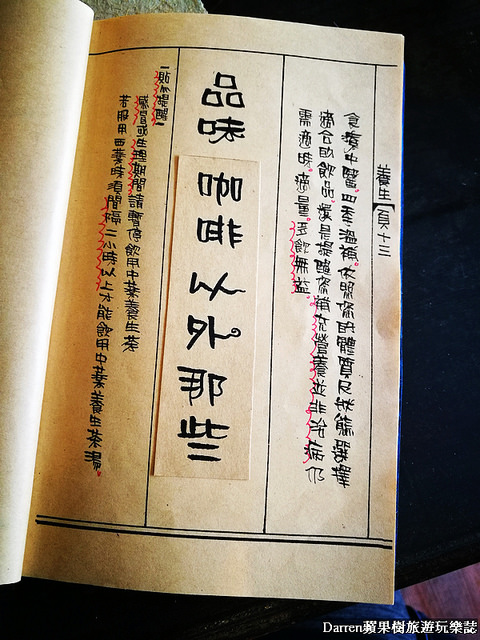 養生【頁十三
食療中醫。四季溫補。依照你的體質及狀態選擇
適合的飲品。還是提醒你補充營養並非治病仍
需適時。適量。多飲無益。
品味咖啡以外。那些
一貼心提醒一
感冒或生理期間請暫停飲用中藥養生茶
若服用西藥時須間隔二小時以上才能飲用中藥養生茶湯。
Darren蘋果樹旅遊玩樂誌